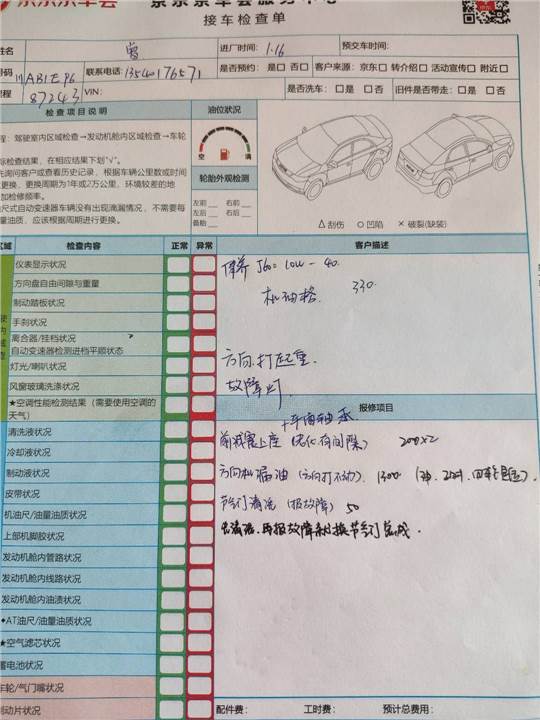 京东京车会 京东京车会服务中心
接车检查单
姓名 曾 进厂时间: 1.16 预交车时间:
号码 川AB1E96 联系电话: 13540176571 是否预约: □是 □否 客户来源: 京东□ 转介绍□ 活动宣传□ 附近□
程 87243 VIN: 是否洗车: □是 □否 旧件是否带走: □是 □否
检查项目说明
油位状况
程: 驾驶室内区域检查→发动机舱内区域检查→车轮
际检查结果, 在相应结果下划"√"。
先询问客户或查看历史记录, 根据车辆公里数或时间
更换, 更换周期为1年或2万公里, 环境较差的地
加检修频率。
油尺式自动变速器车辆没有出现滴漏情况, 不需要每
量油质, 应该根据周期进行更换。
空 满
轮胎外观检测
左前 右前
左后 右后
备胎
△ 刮伤 ○ 凹陷 × 破裂(缺装)
区域 检查内容 正常 异常 客户描述
仪表显示状况
方向盘自由间隙与重量
制动踏板状况
手刹状况
离合器/挂档状况
自动变速器检测进档平顺状态
灯光/喇叭状况
风窗玻璃洗涤状况
★空调性能检测结果 (需要使用空调的
天气)
保养 J600 10W-40
机油格 330
方向打起重
故障灯
报修项目
清洗液状况
冷却液状况
制动液状况
皮带状况
机油尺/油量油质状况
上部机脚胶状况
发动机舱内管路状况
发动机舱内线路状况
发动机舱内油渍状况
◆AT油尺/油量油质状况
★空气滤芯状况
蓄电池状况
车轮/气门嘴状况
制动片状况
+平面轴承
前减震上座 (老化有间隙) 200×2
方向机漏油 (方向打不动) 1300
节气门清洗 (报故障) 50
再报故障 换节气门总成.
配件费: 工时费: 预计总费用: